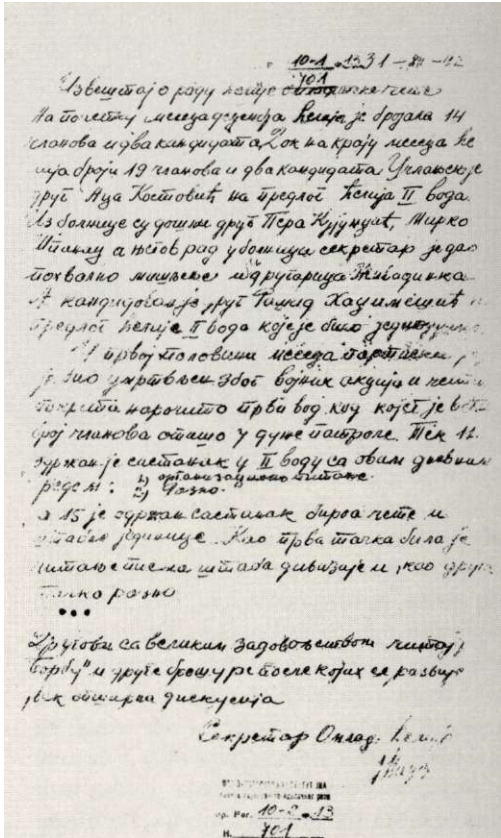 10-1 13 31-84-42
701
Извештај о раду ћелије чете
На почетку месеца децембра ћелија је бројала 14
чланова и два кандидата, Док на крају месеца ће
лија броји 19 чланова и два кандидата Учлањен је
друг Аца Костовић на предлог ћелија II вода.
Из болнице су дошли друг Пера Кујунџић, Мирко
а његов рад у болници секретар је дао
похвално мишљење и другарица
А кандидован је друг Рашид Хаџимешић
предлог ћелије II вода које је било једногласно
У првој половини месеца партиски
је био умртвљен због војних акција и чести
покрета нарочито први вод код којег је већи
број чланова отишо у дуже патроле. Тек 12.
одржан је састанак у II воду са овим дневним
редом: 1) организационо питање
2) Разно.
а 15 је одржан састанак бироа чете и
штабне јединице. Као прва тачка била је
читање писма штаба дивизије и као друга
тачка разно
•••
Другови са великим задовољством читају
"Борбу" и друге брошуре после којих се развије
јек опширна дискусија
Секретар Омлад. ћелије
Ар. Рег. 10-2 13
Н. 701